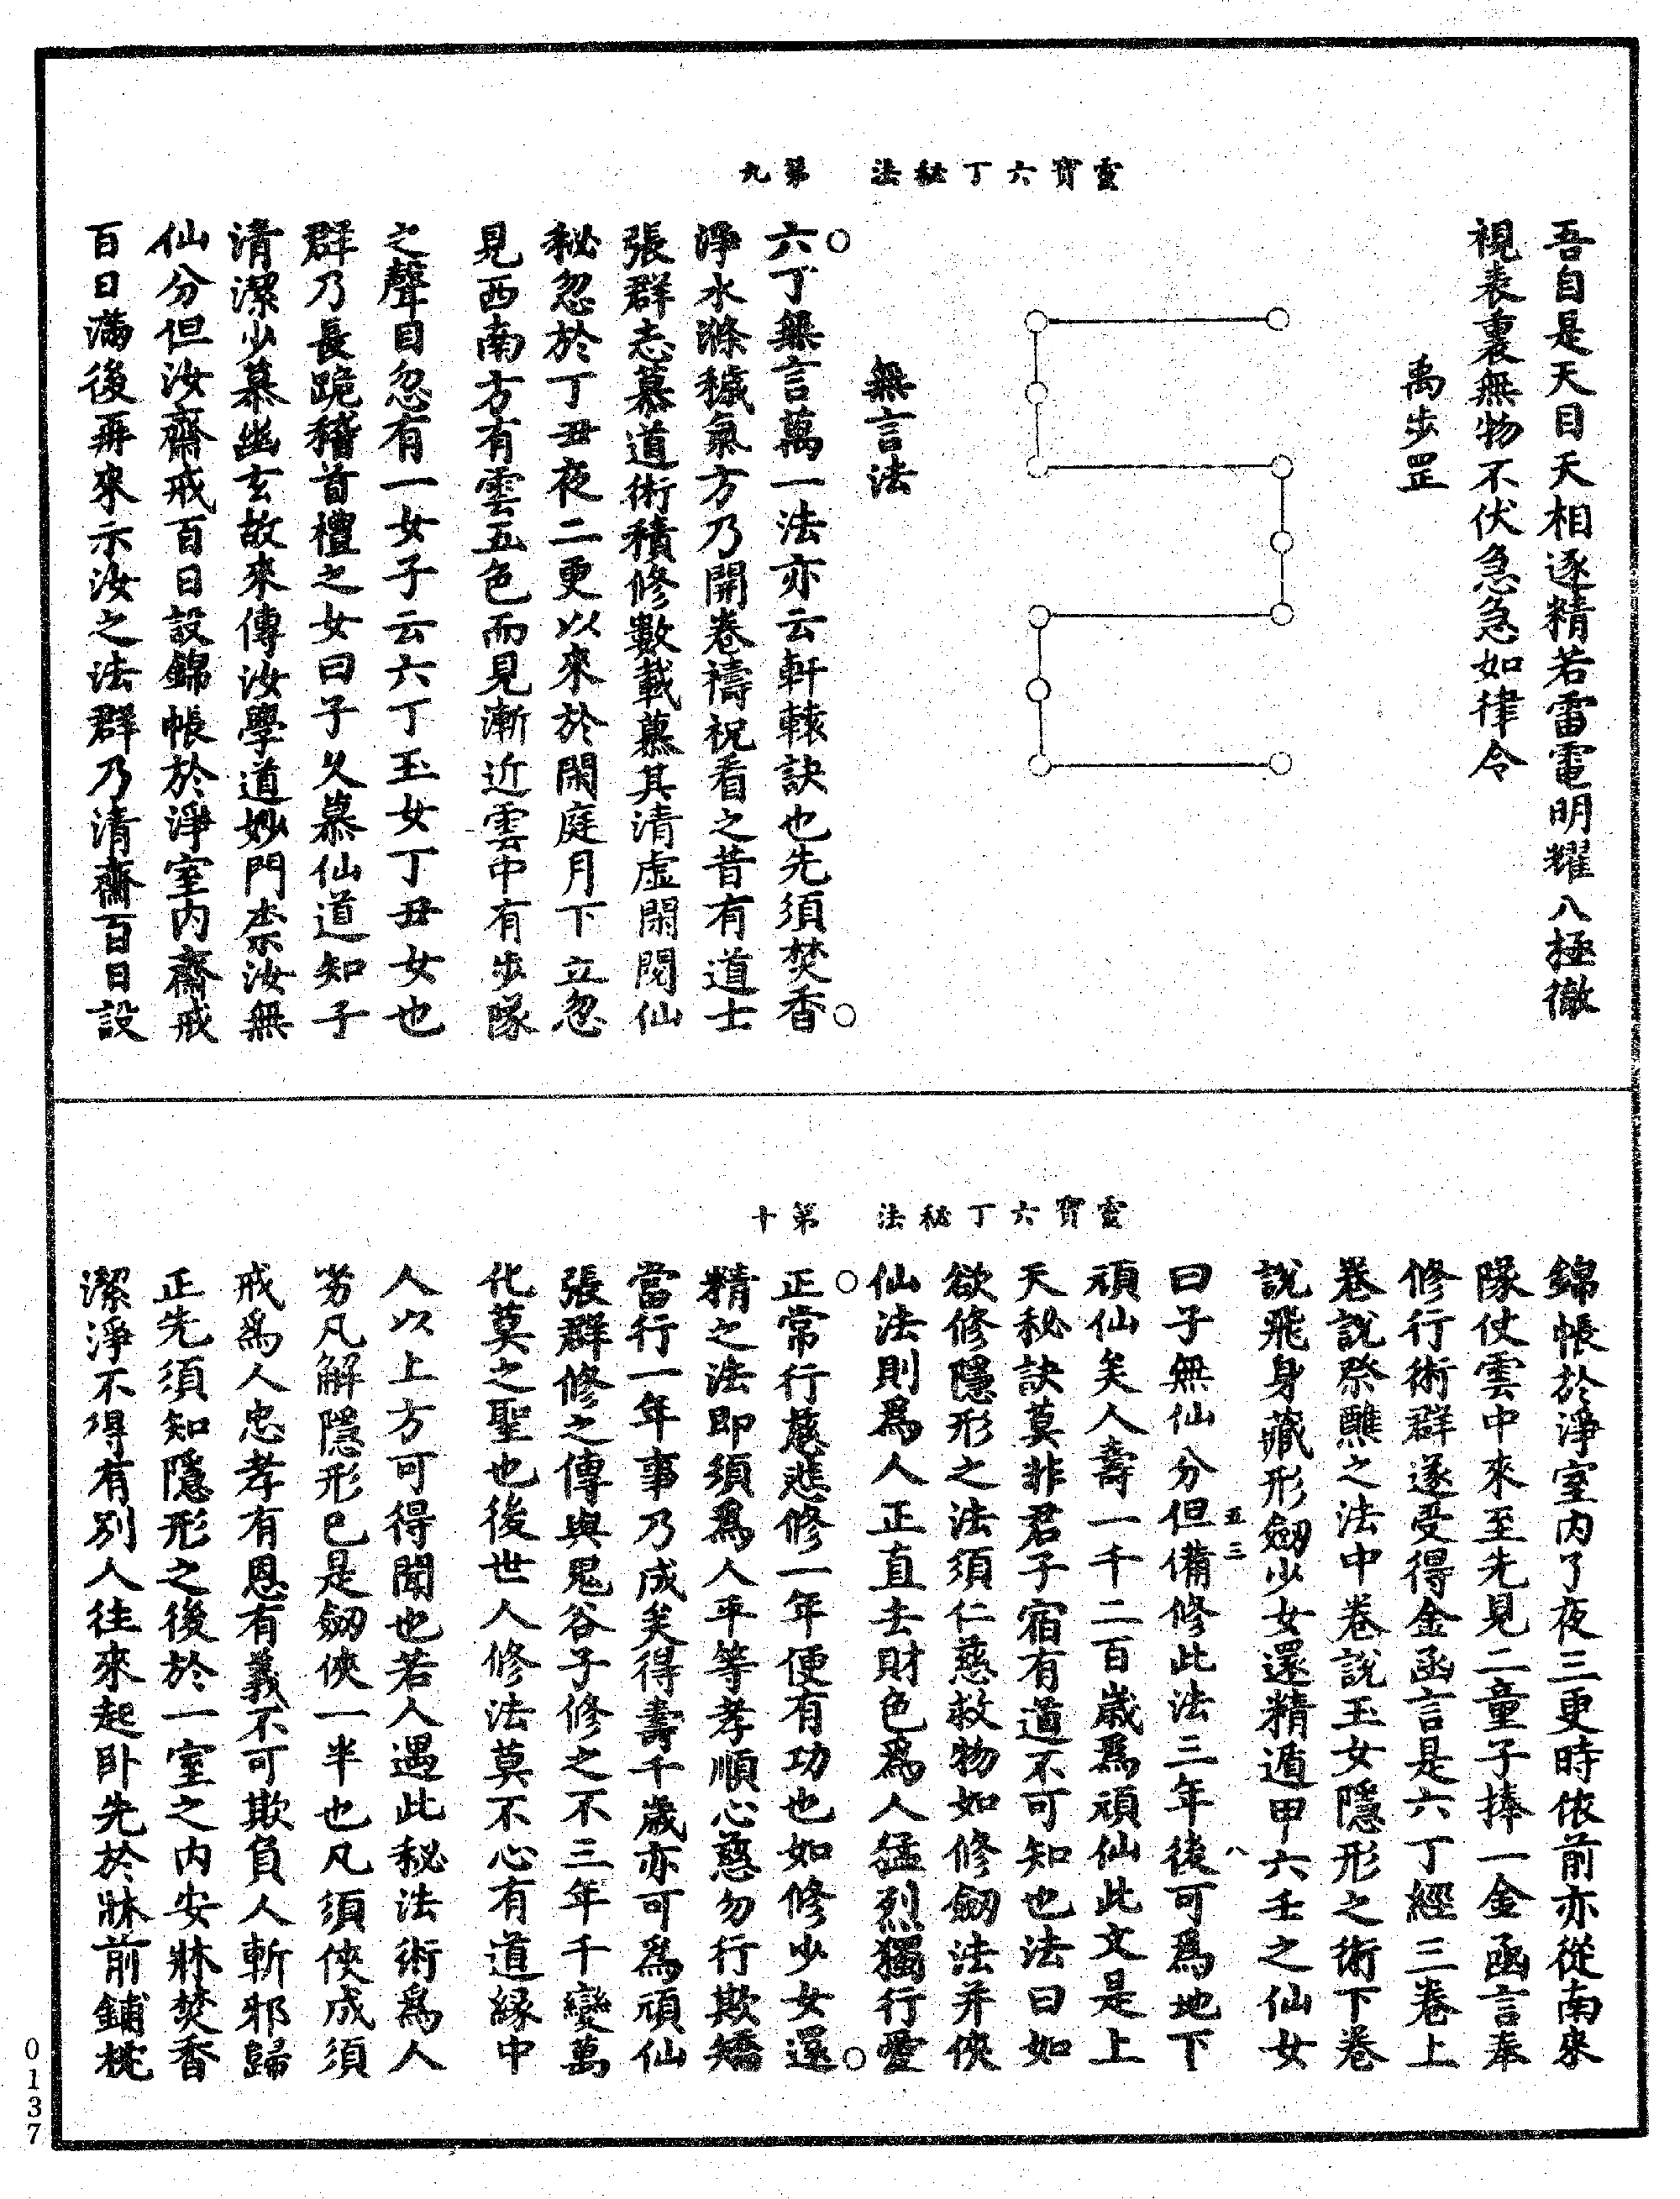 靈寶六丁秘法　第九
吾自是天目天相逐精若雷電明耀八極徹
視表裏無物不伏急急如律令
禹步罡
無言法
六丁無言萬一法亦云軒轅訣也先須焚香
淨水滌穢氣方乃開卷禱祝看之昔有道士
張群志慕道術積修數載慕其清虛閑閱仙
秘忽於丁丑夜二更以來於閑庭月下立忽
見西南方有雲五色而見漸近雲中有步隊
之聲目忽有一女子云六丁玉女丁丑女也
群乃長跪稽首禮之女曰子久慕仙道知子
清潔少慕幽玄故來傳汝學道妙門柰汝無
仙分但汝齋戒百日設錦帳於淨室內齋戒
百日滿後再來示汝之法群乃清齋百日設
靈寶六丁秘法　第十
錦帳於淨室內了夜三更時依前亦從南來
隊仗雲中來至先見二童子捧一金函言奉
修行術群遂受得金函言是六丁經三卷上
卷說祭醮之法中卷說玉女隱形之術下卷
說飛身藏形劒少女還精遁甲六壬之仙女
五三　八
曰子無仙分但備修此法三年後可為地下
頑仙矣人壽一千二百歲為頑仙此文是上
天秘訣莫非君子宿有道不可知也法曰如
欲修隱形之法須仁慈救物如修劒法并俠
仙法則為人正直去財色為人猛烈獨行愛
正常行慈悲修一年便有功也如修少女還
精之法即須為人平等孝順心慈勿行欺矯
當行一年事乃成矣得壽千歲亦可為頑仙
張群修之傳與鬼谷子修之不三年千變萬
化莫之聖也後世人修法莫不心有道緣中
人以上方可得聞也若人遇此秘法術為人
勞凡解隱形已是劒俠一半也凡須俠成須
戒為人忠孝有恩有義不可欺負人斬邪歸
正先須知隱形之後於一室之內安牀焚香
潔淨不得有別人往來起卧先於牀前鋪枕
0137